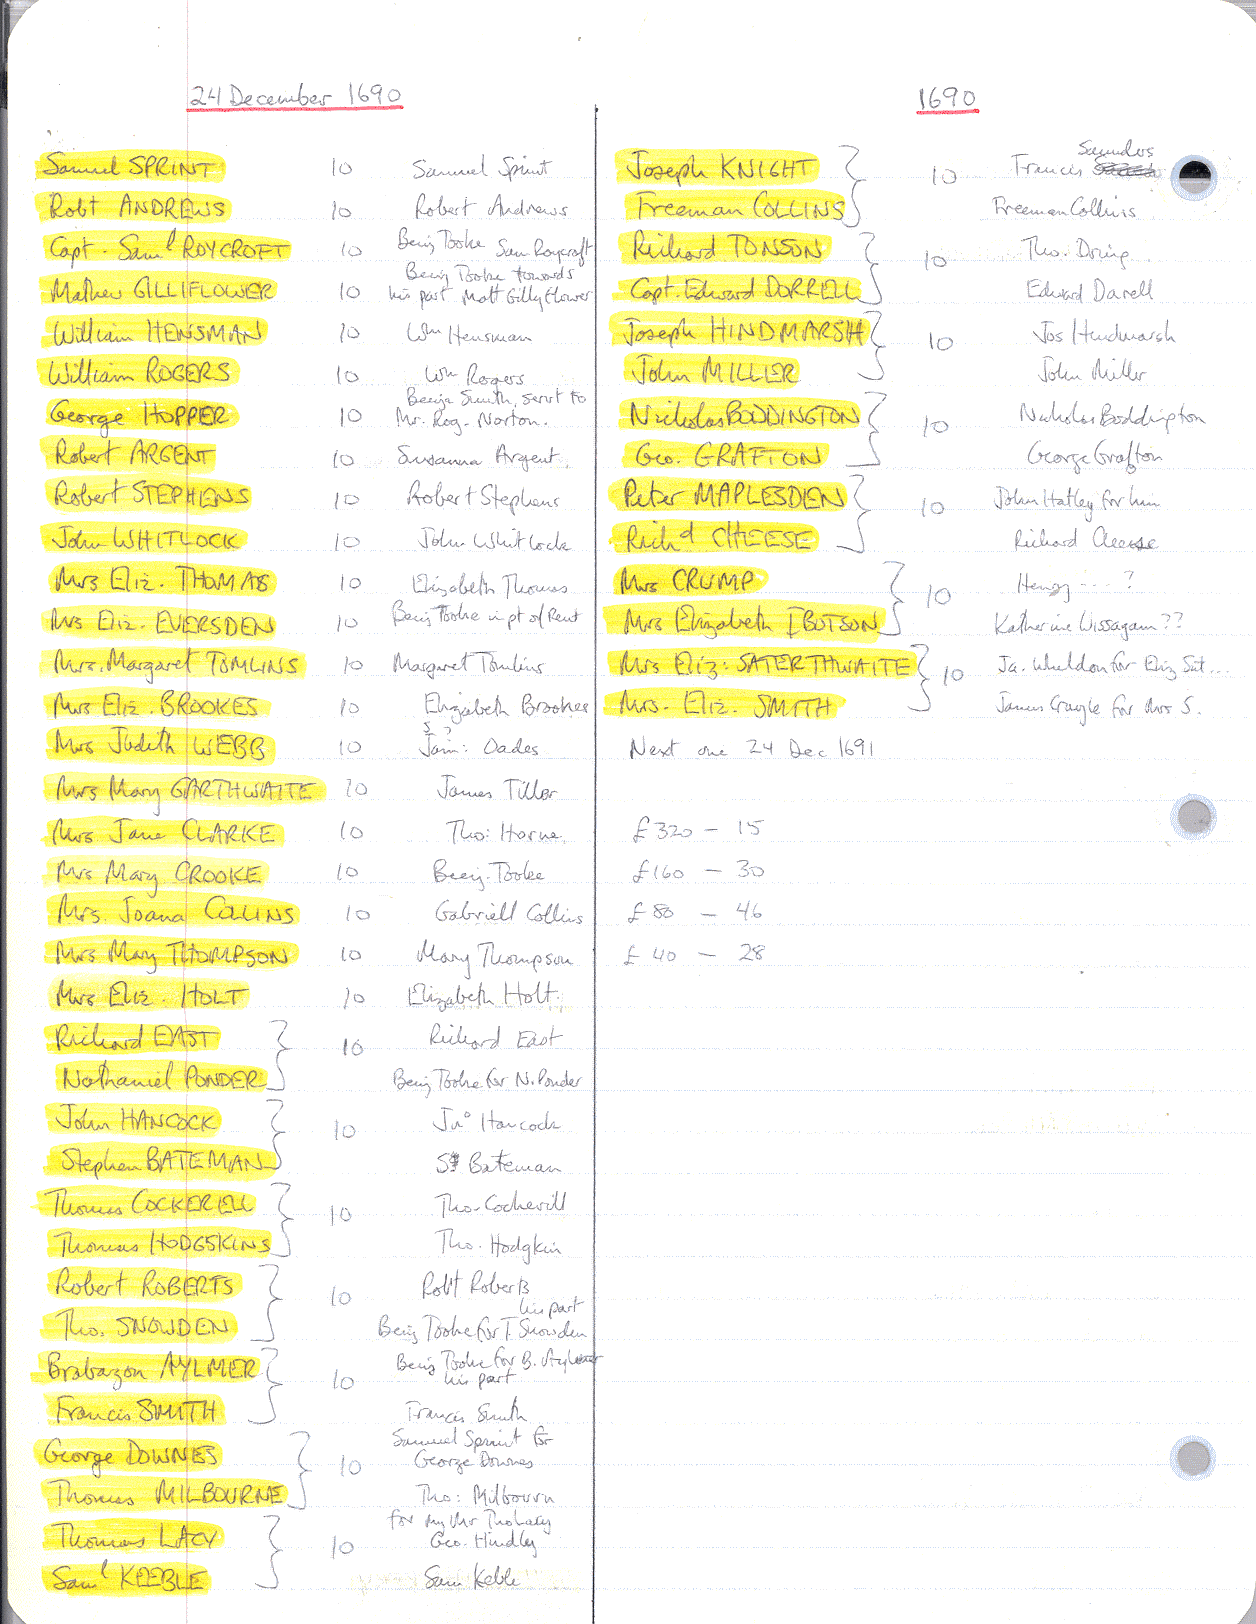 24 December 1690
Samuel SPRINT 10 Samuel Sprint
Robt ANDREWS 10 Robert Andrews
Capt. Saml ROYCROFT 10 Benj Tooke Sam Roycroft
Mathew GILLIFLOWER 10 Benj Tooke towards his part Matt Gillyflower
William HENSMAN 10 Wm Hensman
William ROGERS 10 Wm Rogers
George HOPPER 10 Benja Smith, servt to Mr. Rog. Norton.
Robert ARGENT 10 Susanna Argent
Robert STEPHENS 10 Robert Stephens
John WHITLOCK 10 John Whitlock
Mrs Eliz. THOMAS 10 Elizabeth Thomas
Mrs Eliz. EVERSDEN 10 Benj Tooke in pt of Rent
Mrs. Margaret TOMLINS 10 Margaret Tomlins
Mrs Eliz. BROOKES 10 Elizabeth Brookes
Mrs Judith WEBB 10 Jam: Oades
S ?
Mrs Mary GARTHWAITE 20 James Tiller
Mrs Jane CLARKE 10 Tho: Horne
Mrs Mary CROOKE 10 Benj. Tooke
Mrs. Joana COLLINS 10 Gabriell Collins
Mrs Mary THOMPSON 10 Mary Thompson
Mrs Eliz. HOLT 10 Elizabeth Holt
Richard EAST 10 Richard East
Nathaniel PONDER Benj Tooke for N. Ponder
John HANCOCK 10 Jno Hancock
Stephen BATEMAN St Bateman
Thomas COCKERELL 10 Tho. Cockerill
Thomas HODGSKINS Tho. Hodgkin
Robert ROBERTS 10 Robt Roberts
Tho. SNOWDEN Benj Tooke for T. Snowden his part
Brabazon AYLMER 10 Benj Tooke for B. Aylmer his part
Francis SMITH Francis Smith
George DOWNES 10 Samuel Sprint for George Downes
Thomas MILBOURNE Tho: Milbourn
Thomas LACY 10 for my Mr Tho Lacy Geo. Hindley
Saml KEEBLE Sam Keble
1690
Joseph KNIGHT 10 Francis Saunders
Freeman COLLINS Freeman Collins
Richard TONSON 10 Tho. Dring
Capt. Edward DORRELL Edward Darell
Joseph HINDMARSH 10 Jos Hindmarsh
John MILLER John Miller
Nicholas BODDINGTON 10 Nicholas Boddington
Geo. GRAFTON George Grafton
Peter MAPLESDEN 10 John Hatley for him
Richd CHEESE Richard Cheese
Mrs CRUMP 10 Henry --- ?
Mrs Elizabeth IBOTSON Katherine Wissagam??
Mrs Eliz: SATERTHWAITE 10 Ja. Wheldon for Eliz Sat...
Mrs. Eliz. SMITH James Crayle for Mrs S.
Next one 24 Dec 1691
£320 - 15
£160 - 30
£80 - 46
£40 - 28